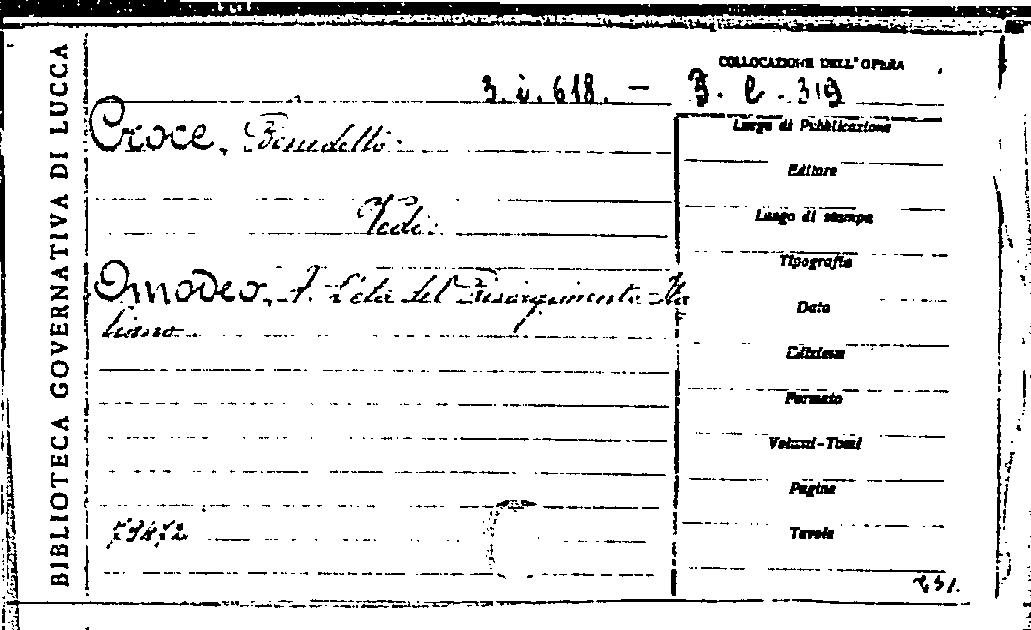 BIBLIOTECA GOVERNATIVA DI LUCCA
COLLOCAZIONE DELL' OPERA
3. i. 618. — 3. e. 319
Croce, Benedetto.
Vedi:
Omodeo, A. L'età del Risorgimento Ita
liano.
Luogo di Pubblicazione
Editore
Luogo di stampa
Tipografia
Data
Edizione
Formato
Volumi-Tomi
Pagine
Tavole
79472